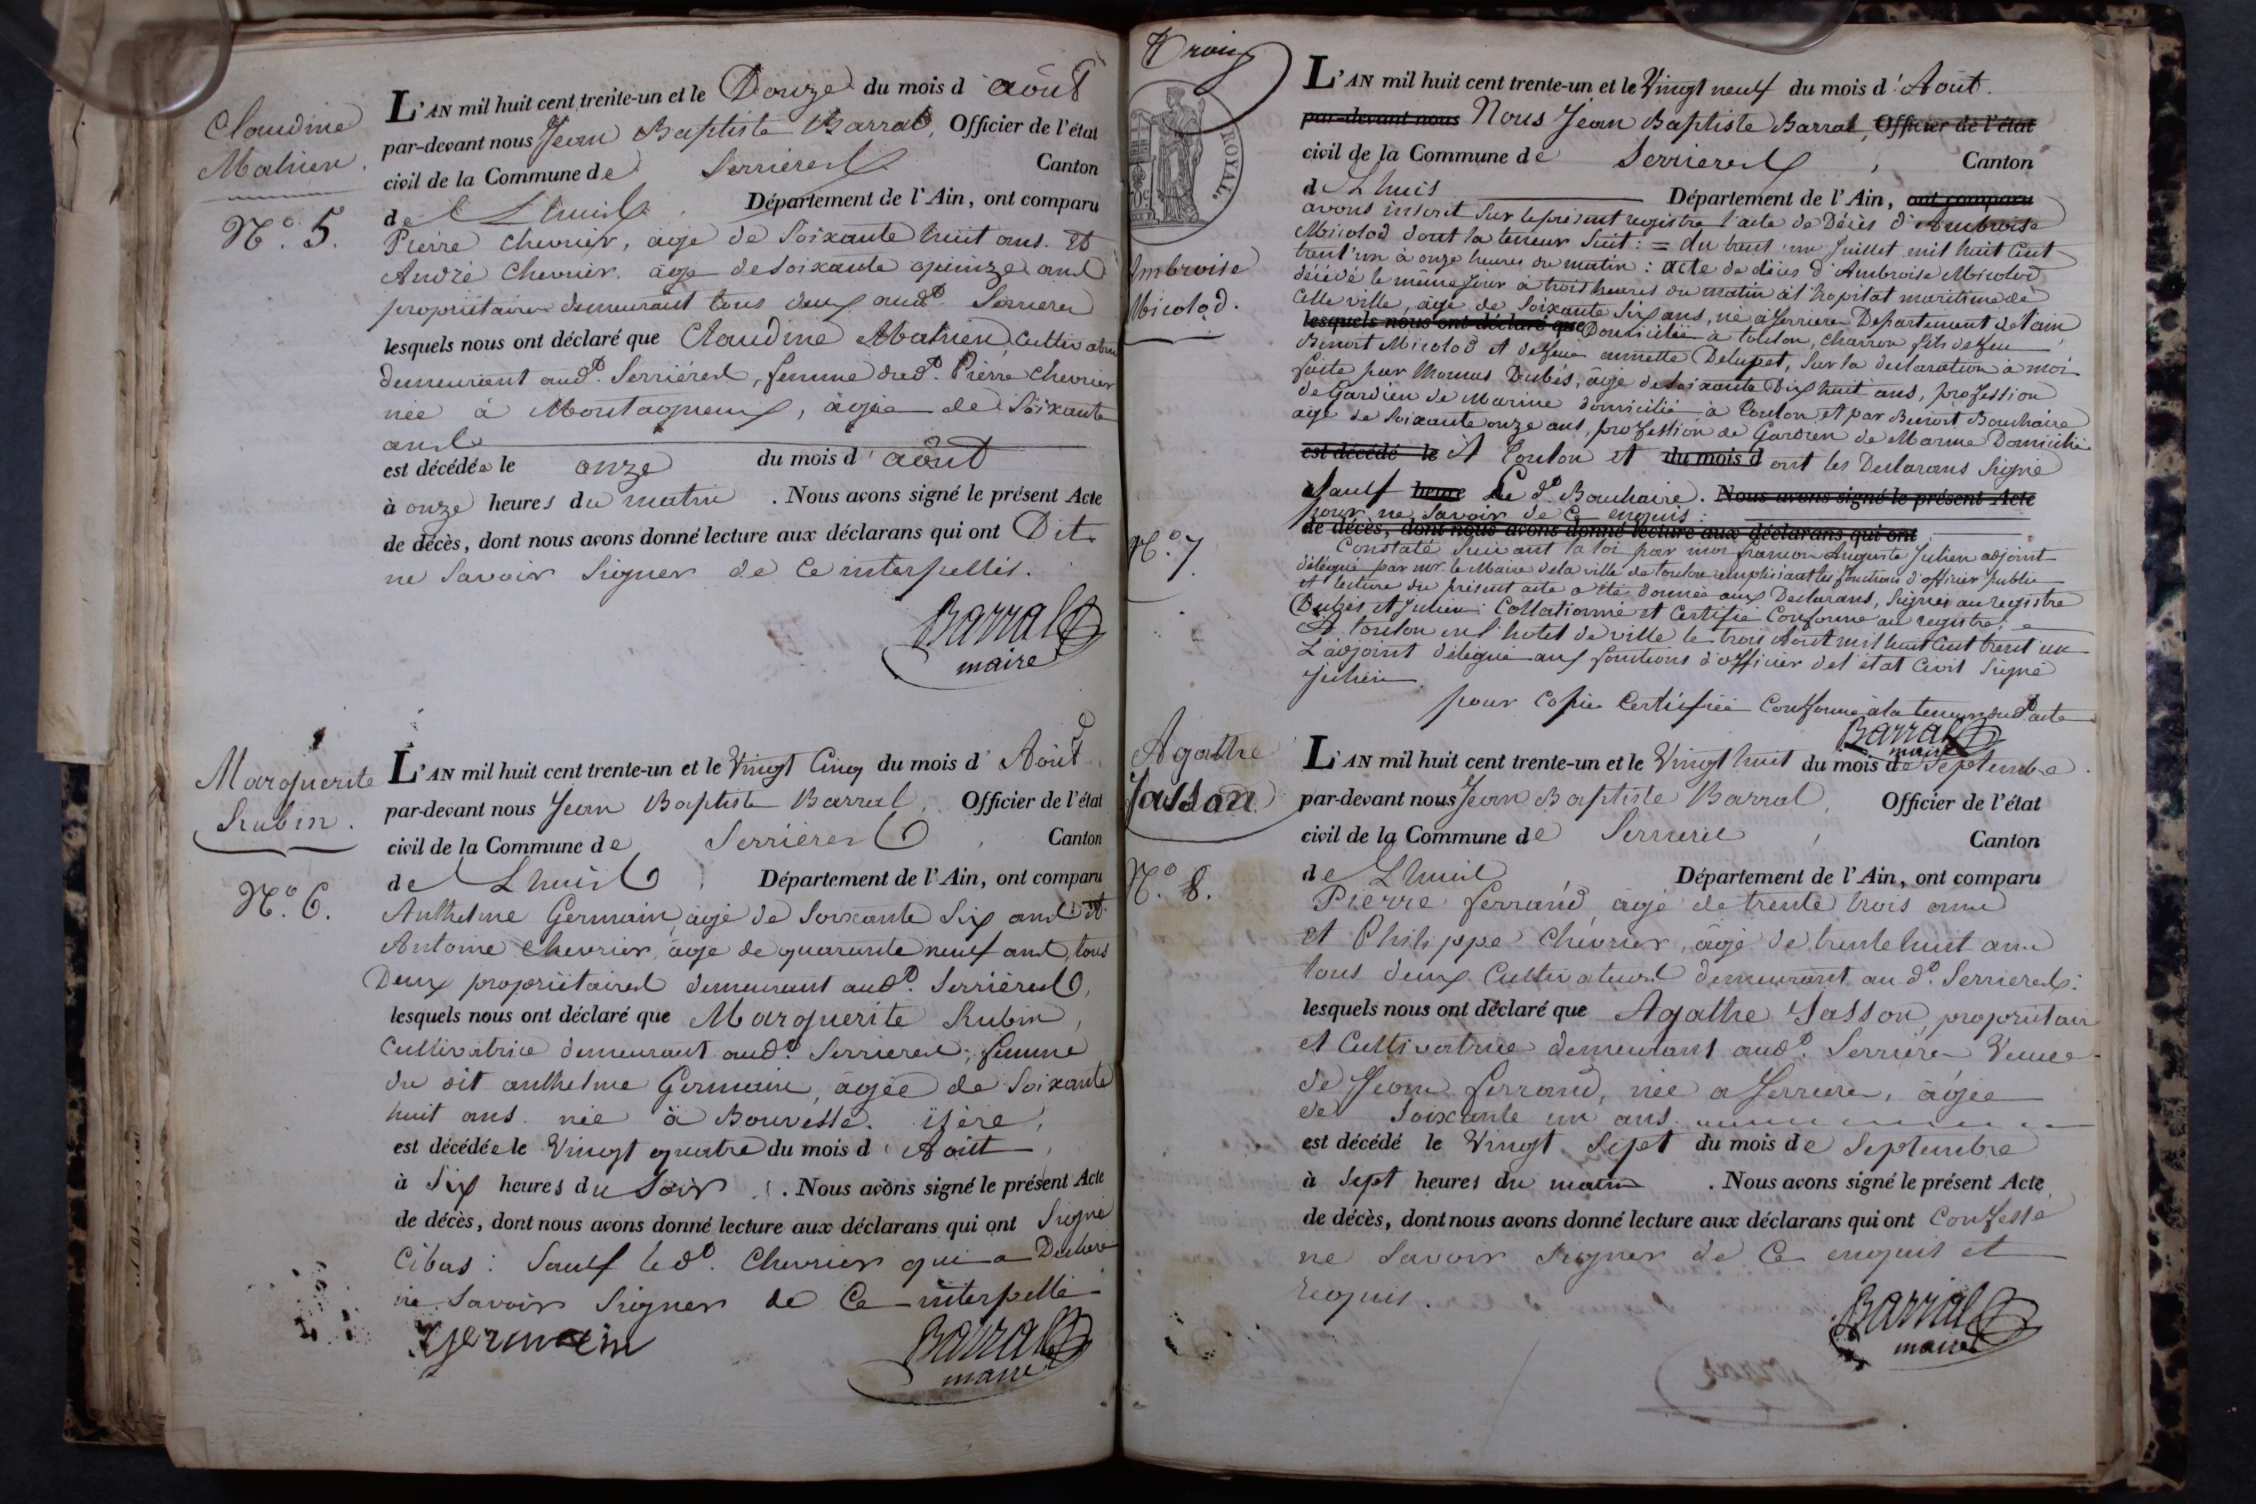 Claudine
Mathieu.
N.o 5.
L'AN mil huit cent trente-un et le Douze du mois d'août
par-devant nous Jean Baptiste Barral, Officier de l'état
civil de la Commune de Serrières Canton
de Lhuis, Département de l'Ain, ont comparu
Pierre Chevrier, agé de Soixante huit ans. Et
André Chevrier, agé de soixante quinze ans
propriétaires demeurant tous deux aud.t Serrieres
lesquels nous ont déclaré que Claudine Mathieu, Cultivatrice
demeurant aud.t Serriéres, femme dud.t Pierre Chevrier
née à Montagneux, âgée de Soixante
ans
est décédée le onze du mois d'août
à onze heures du matin. Nous avons signé le présent Acte
de décès, dont nous avons donné lecture aux déclarans qui ont Dit
ne Savoir Signer de ce interpellés.
Barral
maire
Marguerite
Rubin.
N.o 6.
L'AN mil huit cent trente-un et le Vingt Cinq du mois d'Août
par-devant nous Jean Baptiste Barral, Officier de l'état
civil de la Commune de Serriéres, Canton
de Lhuis, Département de l'Ain, ont comparu
Anthelme Germain, agé de Soixante Six ans Et
Antoine Chevrier, age de quarante neuf ans, tous
Deux propriétaires demeurant aud.t Serriéres,
lesquels nous ont déclaré que Marguerite Rubin,
Cultivatrice demeurant aud.t Serrieres, femme
du dit anthelme Germain, agée de Soixante
huit ans née à Bouvesse. isère,
est décédée le Vingt quatre du mois d'Août
à Six heures du Soir. Nous avons signé le présent Acte
de décès, dont nous avons donné lecture aux déclarans qui ont Signé
Cibas : Sauf led.t Chevrier qui a Déclaré
ne Savoir Signer de Ce interpellé
Germain Barral
maire
Trois
ROYAL.
Ambroise
Micolod.
N.o 7.
L'AN mil huit cent trente-un et le Vingt neuf du mois d'Août.
par-devant nous Nous Jean Baptiste Barral, Officier de l'état
civil de la Commune de Serrieres, Canton
de Lhuis Département de l'Ain, ont comparu
avons inscrit Sur le présent registre l'acte de Décès d'Ambroise
Micolod dont la teneur Suit : = du trent'un Juillet mil huit Cent
trent'un à onze heures du matin : acte de décès d'Ambroise Micolod
décédé le même jour à trois heures du matin à l'hopital maritime de
Cette ville, agé de Soixante Six ans, né à Serrieres Département de l'ain
lesquels nous ont déclaré que Domicilié à toulon, Charron fils de feu
Benoit Micolod et de feue annette Delupet, Sur la déclaration à moi
faite par thomas Dubés, âgé de soixante Dix huit ans, profession
de Gardien de Marine domicilié à Toulon et par Benoit Bouchaire
agé de Soixante onze ans, profession de Gardien de Marine Domicilié
est décédé le A Toulon et du mois d ont les Déclarans Signé
Sauf heure Le d.t Bouchaire. Nous avons signé le présent Acte
pour ne Savoir de Ce enquis :
de décès, dont nous avons donné lecture aux déclarans qui ont
Constaté Suivant la loi par moi Auguste Julien adjoint
délégué par mr. le Maire de la ville de toulon remplissant les fonctions d'officier public
et lecture du présent acte a été donnée aux Déclarans, Signés au registre
Dubés et Julien : Collationné et Certifié Conforme au registre.
A toulon en l'hotel de ville le trois Aout mil huit Cent trent'un
L'adjoint délégué aux fonctions d'officier del'état Civil Signé
Julien.
pour Copie Certifiée Conforme à la teneur dud.t acte
Barral
maire
Agathe
Jasson
N.o 8.
L'AN mil huit cent trente-un et le Vingt huit du mois de Septembre.
par-devant nous Jean Baptiste Barral, Officier de l'état
civil de la Commune de Serrieres, Canton
de Lhuis Département de l'Ain, ont comparu
Pierre ferrand, agé de trente trois ans
et Philippe Chevrier, âgé de trente huit ans
tous deux Cultivateurs demeurant au d.t Serrieres :
lesquels nous ont déclaré que Agathe Jasson, propriétaire
et Cultivatrice demeurant aud.t Serrieres Veuve
de Jean ferrand, née a Serriere, âgée
de Soixante un ans
est décédé le Vingt Sept du mois de Septembre
à Sept heures du matin. Nous avons signé le présent Acte
de décès, dont nous avons donné lecture aux déclarans qui ont Confessé
ne Savoir Signer de Ce enquis et
requis.
Barral
maire